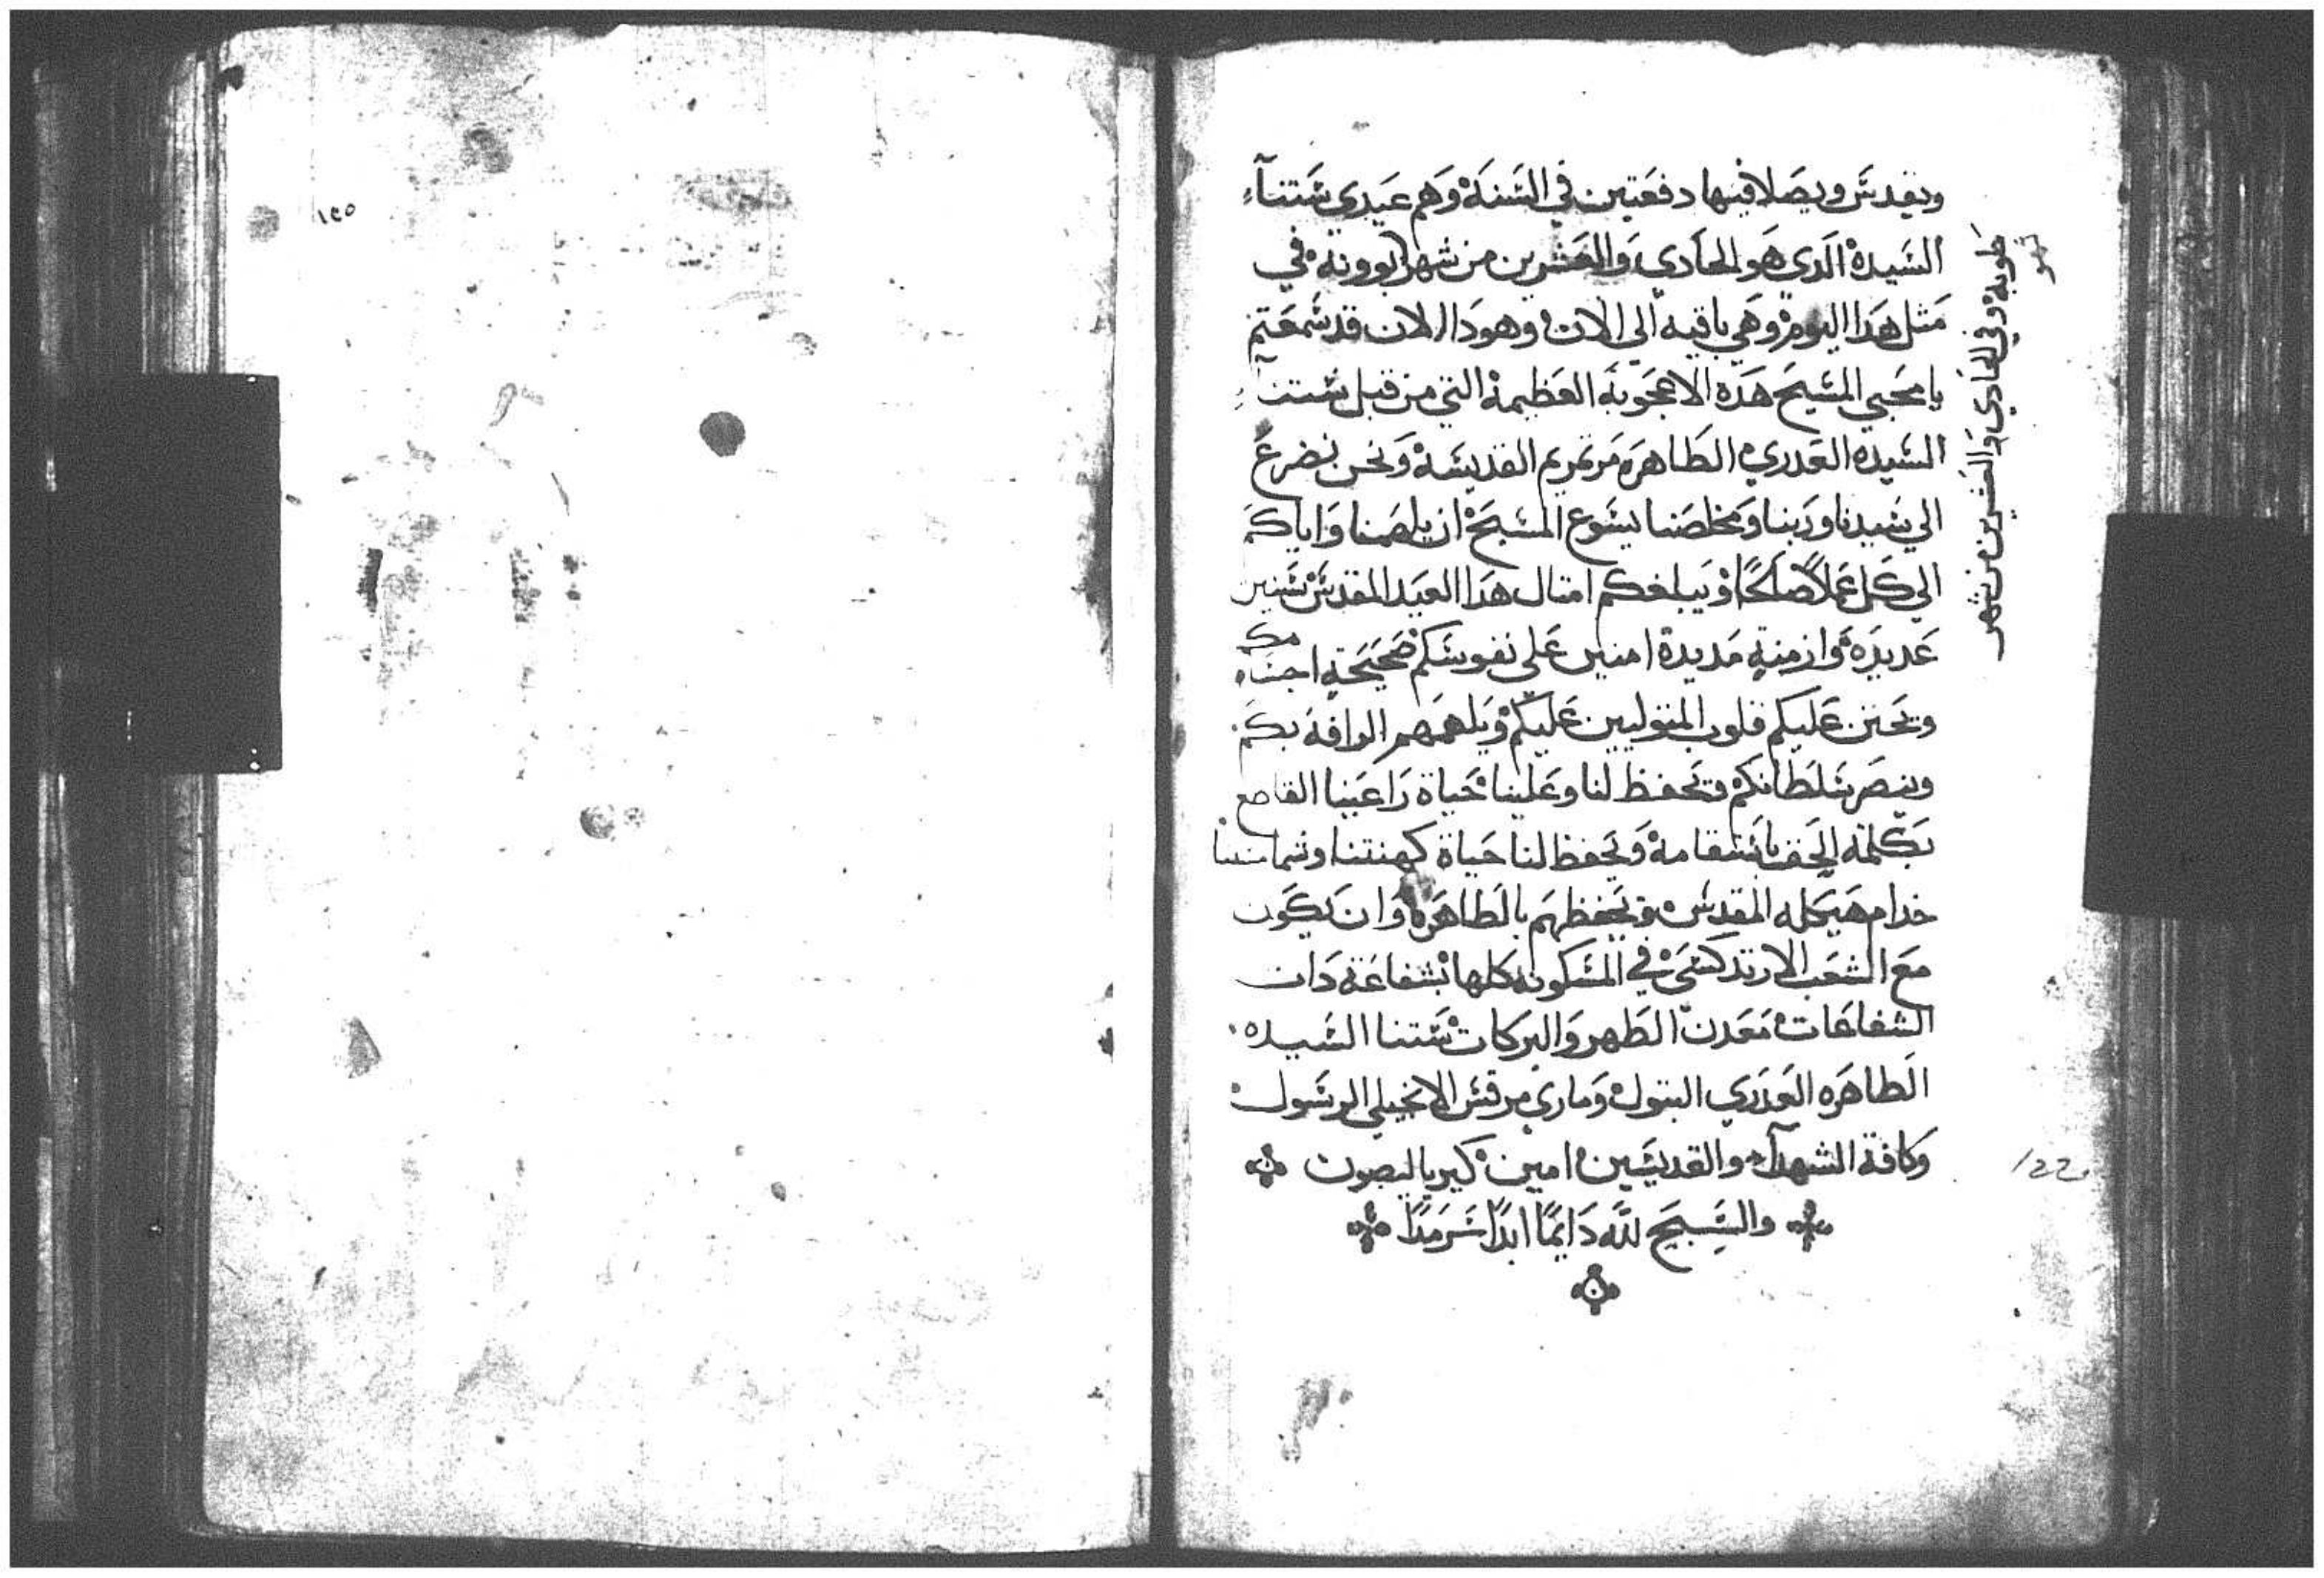 ويقدس ويصلا فيها دفعتين في السنة وهم عيدي ستنآ
السيدة الدي هو الحادي والعشرين من شهر بوونه في
مثل هدا اليوم وهي باقيه الي الان وهودا الان قد سمعتم
يا محبي المسيح هده الاعجوبة العظيمة التي من قبل ستنا
السيده العدري الطاهره مرتمريم القديسة ونحن نضرع
الي سيدنا وربنا ومخلصنا يسوع المسيح ان يلهمنا واياكم
الي كل عملاً صالحًا ويبلغكم امتال هدا العيد المقدس سنين
عديدة وازمنة مديدة امنين علي نفوسكم صحيحة اجسامكم
ويحنن عليكم قلوب المتوليين عليكم ويلهمهم الرافة بكم
وينصر سلطانكم ويحفظ لنا وعلينا حياة راعينا القاطع
بكلمة الحق باستقامة ويحفظ لنا حياة كهنتنا وشمامستنا
خدام هيكله المقدس ويحفظهم بالطاهرة وان يكون
مع الشعب الارتدكسي في المسكونه كلها بشفاعة دات
الشفاعات معدن الطهر والبركات ستنا السيده
الطاهره العدري البتول وماري مرقس الانجيلي الرسول
وكافة الشهدآ والقديسين امين كيرياليصون
والتسبيح لله دايمًا ابدًا سرمدًا
طوبة وفي الحادي والعشرين من شهر
122
١٢٥